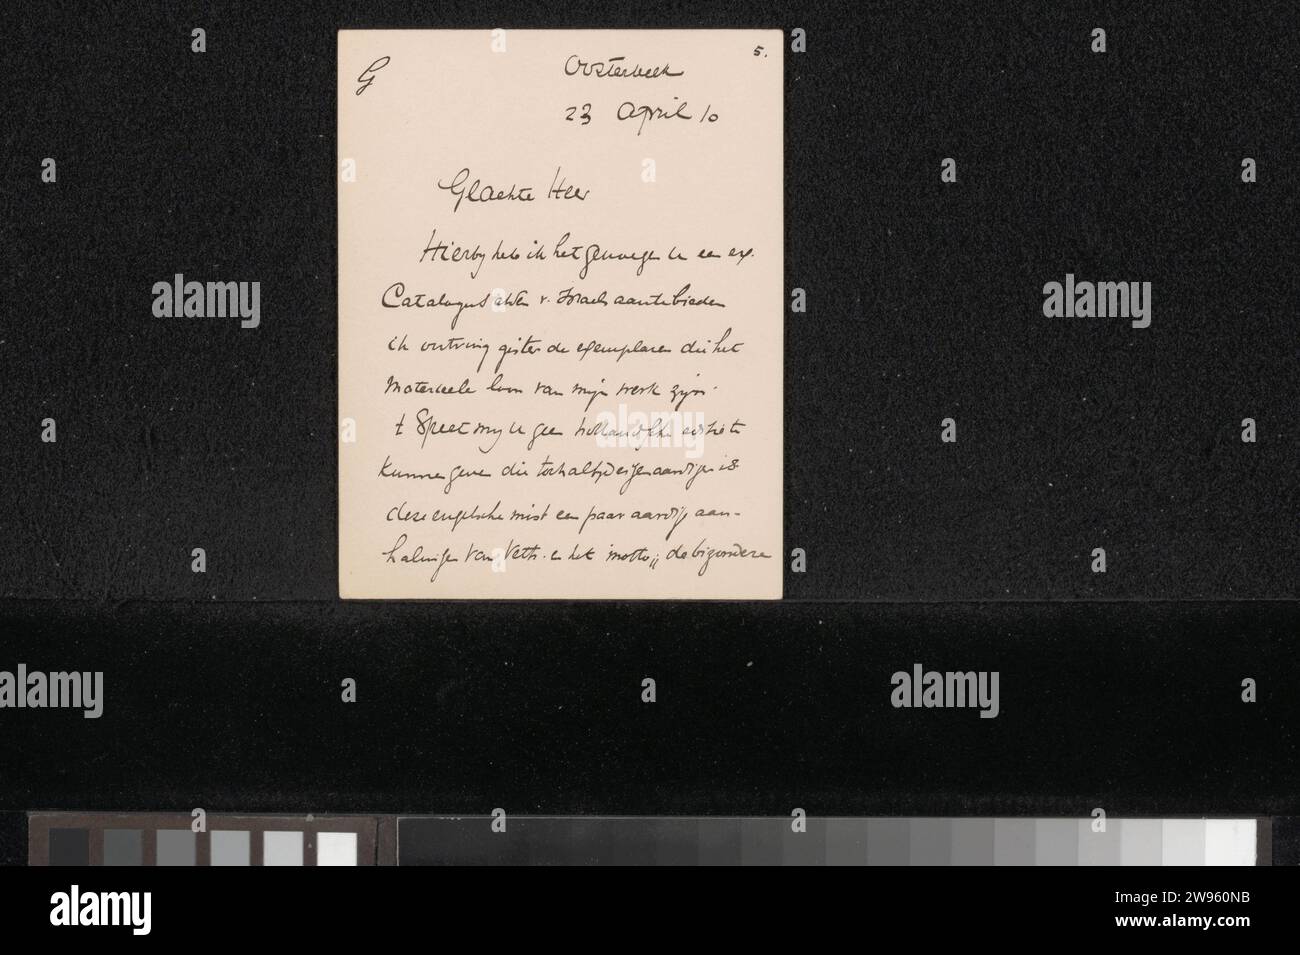 G
5.
Oosterbeek
23 April 10
Geachte Heer
Hierby heb ik het genoegen U een ex.
Catalogus etsen v. Israels aantebieden
ik ontving gister de exemplaren die het
materieele loon van mijn werk zijn.
t Speet my U geen hollandsche editie te
kunnen geven die toch altijd eigenaardiger is
deze engelsche mist een paar aardige aan-
halingen van Veth. en het motto „de bizondere
alamy
Image ID: 2W960NB
www.alamy.com